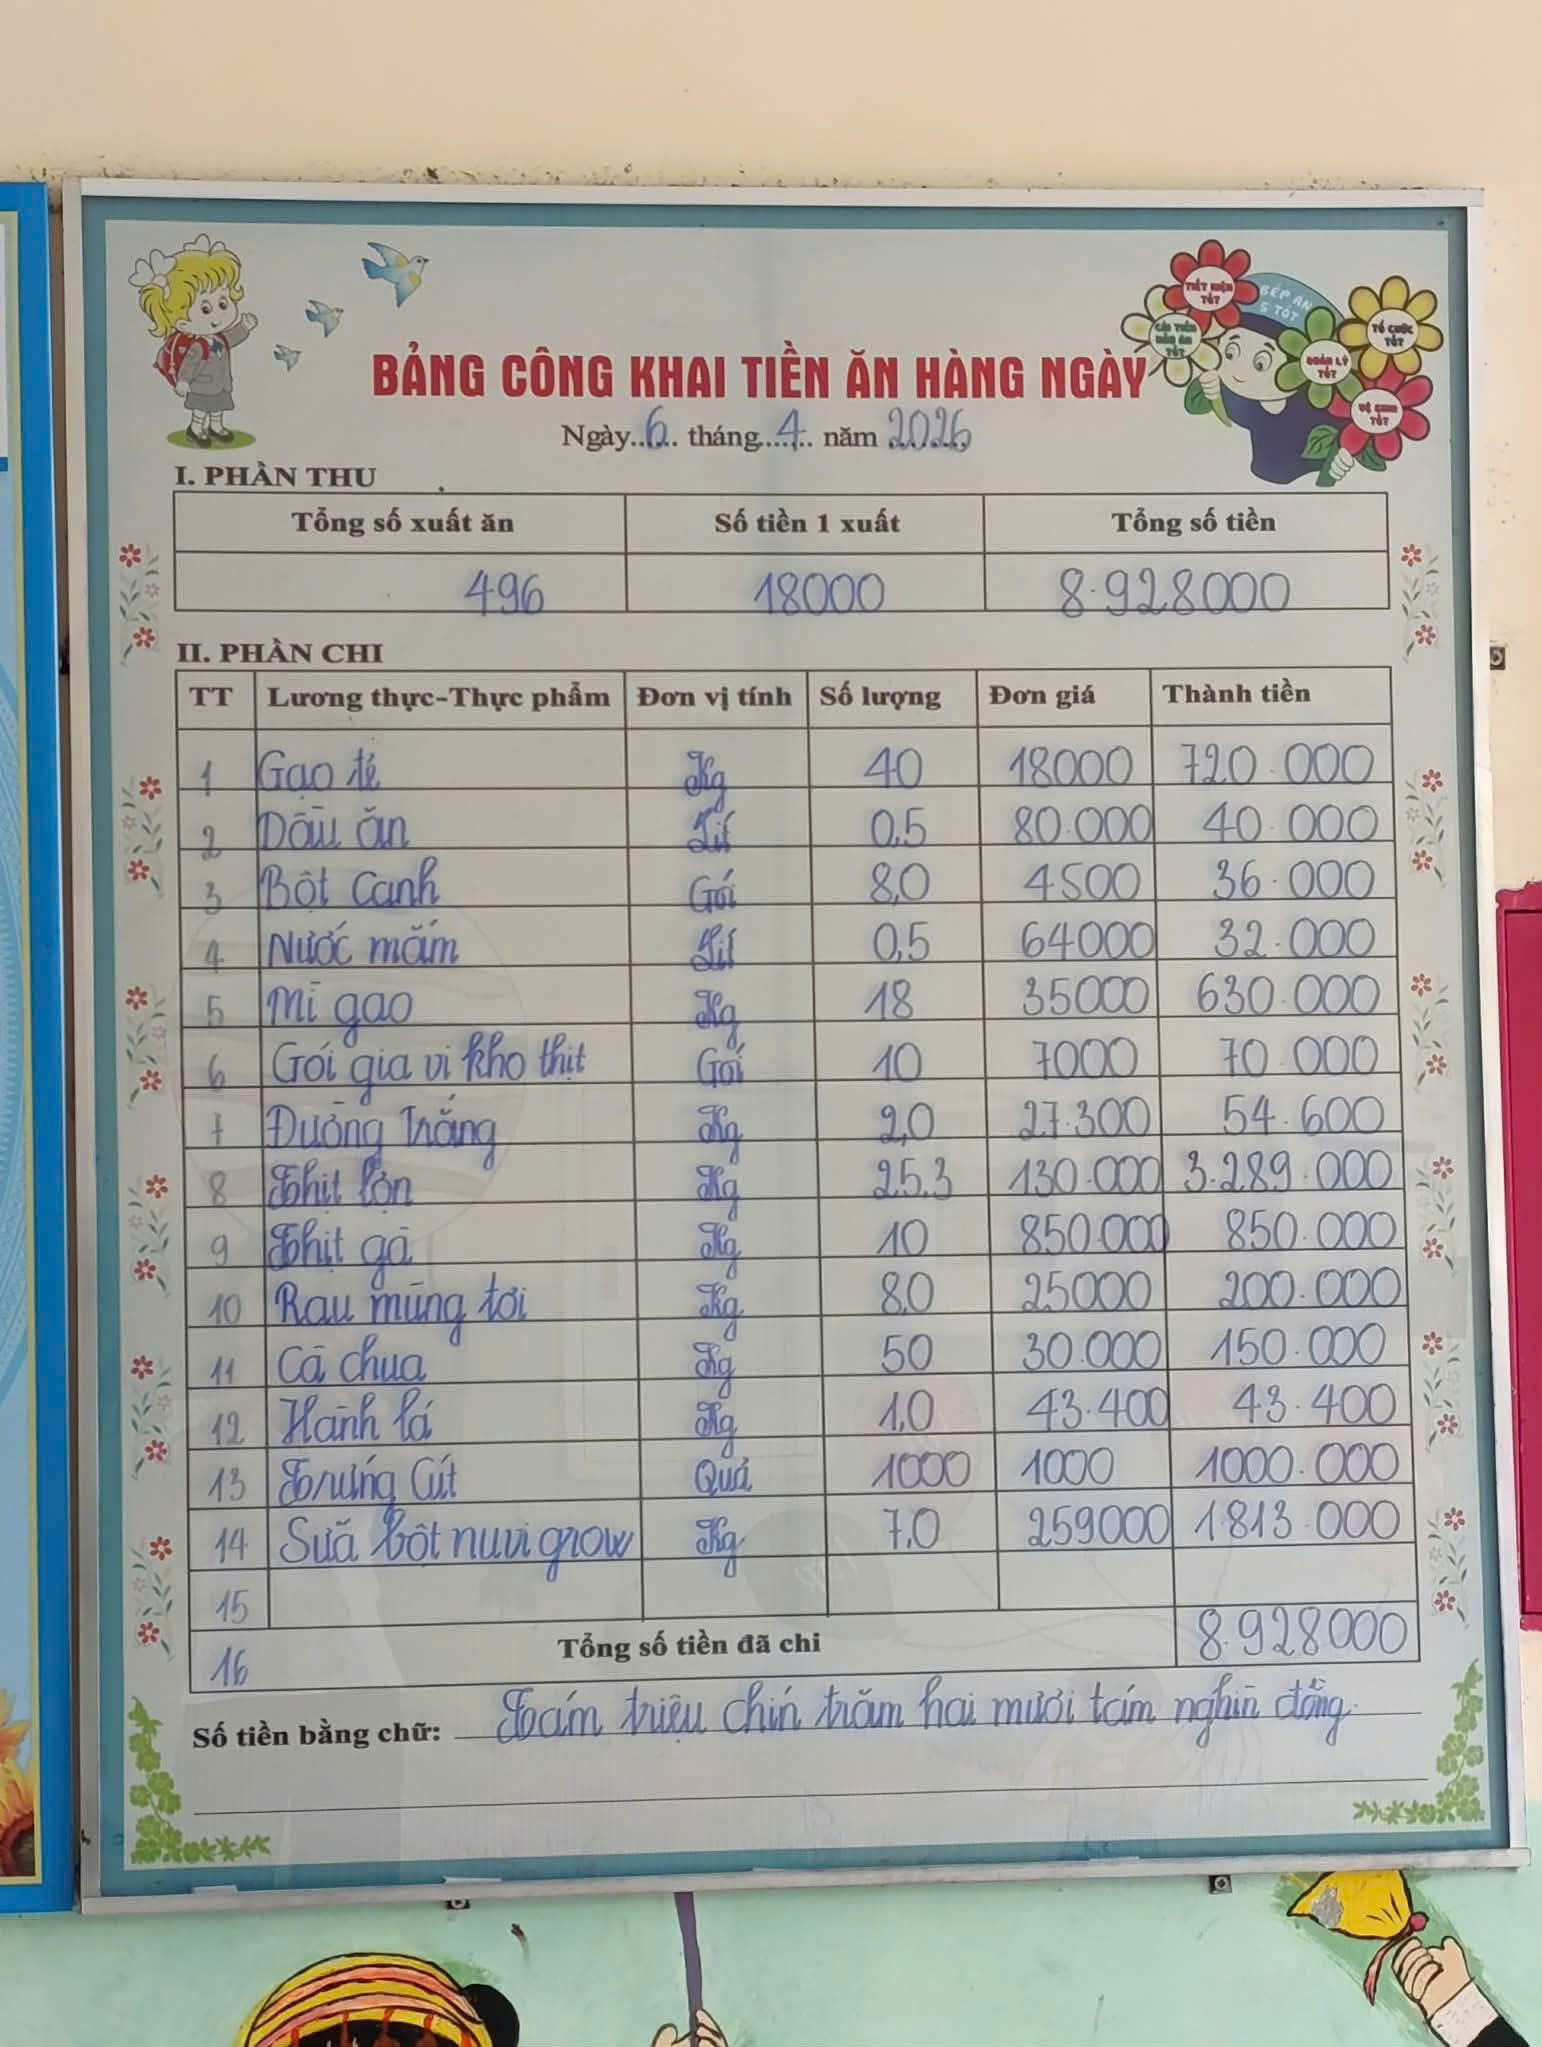 TIẾT KIỆM TỐT
BẾP ĂN 5 TỐT
TỔ CHỨC TỐT
CẢI TIẾN MÓN ĂN TỐT
QUẢN LÝ TỐT
VỆ SINH TỐT
BẢNG CÔNG KHAI TIỀN ĂN HÀNG NGÀY
Ngày...6... tháng...4... năm 2026
I. PHẦN THU
Tổng số xuất ăn Số tiền 1 xuất Tổng số tiền
496 18000 8.928000
II. PHẦN CHI
TT Lương thực-Thực phẩm Đơn vị tính Số lượng Đơn giá Thành tiền
1 Gạo tẻ Kg 40 18000 720.000
2 Dầu ăn Lít 0,5 80.000 40.000
3 Bột canh Gói 8,0 4500 36.000
4 Nước mắm Lít 0,5 64000 32.000
5 Mì gạo Kg 18 35000 630.000
6 Gói gia vị kho thịt Gói 10 7000 70.000
7 Đường trắng Kg 2,0 27.300 54.600
8 Thịt lợn Kg 25,3 130.000 3.289.000
9 Thịt gà Kg 10 850.000 850.000
10 Rau mùng tơi Kg 8,0 25000 200.000
11 Cà chua Kg 50 30.000 150.000
12 Hành lá Kg 1,0 43.400 43.400
13 Trứng Cút Quả 1000 1000 1000.000
14 Sữa bột nuvi grow Kg 7,0 259000 1.813.000
15
16 Tổng số tiền đã chi 8.928000
Số tiền bằng chữ: Tám triệu chín trăm hai mươi tám nghìn đồng.